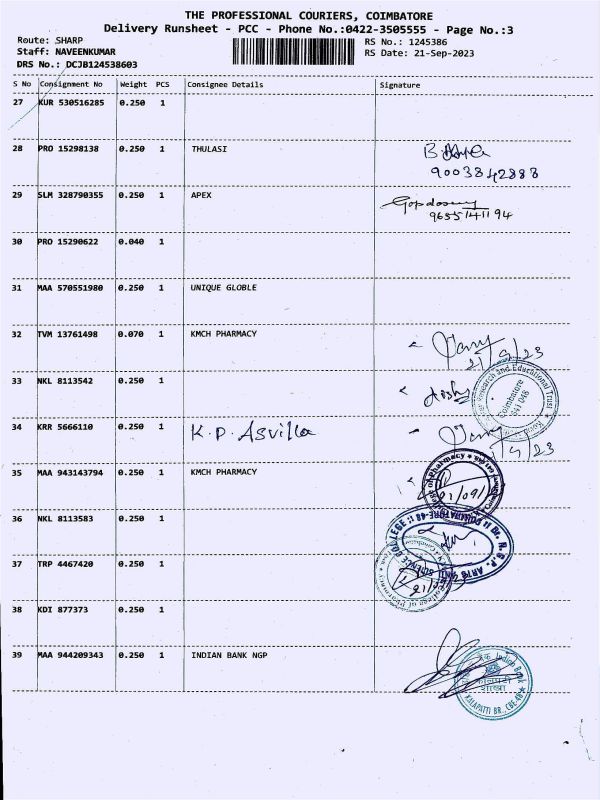 THE PROFESSIONAL COURIERS, COIMBATORE
Delivery Runsheet - PCC - Phone No.:0422-3505555 - Page No.:3
Route: SHARP
RS No.: 1245386
Staff: NAVEENKUMAR
RS Date: 21-Sep-2023
DRS No.: DCJB124538603
S No Consignment No Weight PCS Consignee Details Signature
27 KUR 530516285 0.250 1
28 PRO 15298138 0.250 1 THULASI
9003842888
29 SLM 328790355 0.250 1 APEX
9655141194
30 PRO 15290622 0.040 1
31 MAA 570551980 0.250 1 UNIQUE GLOBLE
32 TVM 13761498 0.070 1 KMCH PHARMACY
21/9/23
33 NKL 8113542 0.250 1
Research and Educational Trust
Coimbatore
641 048
34 KRR 5666110 0.250 1 K.P. Asvilla
35 MAA 943143794 0.250 1 KMCH PHARMACY
of Pharmacy
36 NKL 8113583 0.250 1
Dr. N.G.P. ARTS AND SCIENCE COLLEGE
COIMBATORE-48
37 TRP 4467420 0.250 1
College of Pharmacy
38 KDI 877373 0.250 1
39 MAA 944209343 0.250 1 INDIAN BANK NGP
Indian Bank
शाखा
KALAPATTI BR., CBE-48